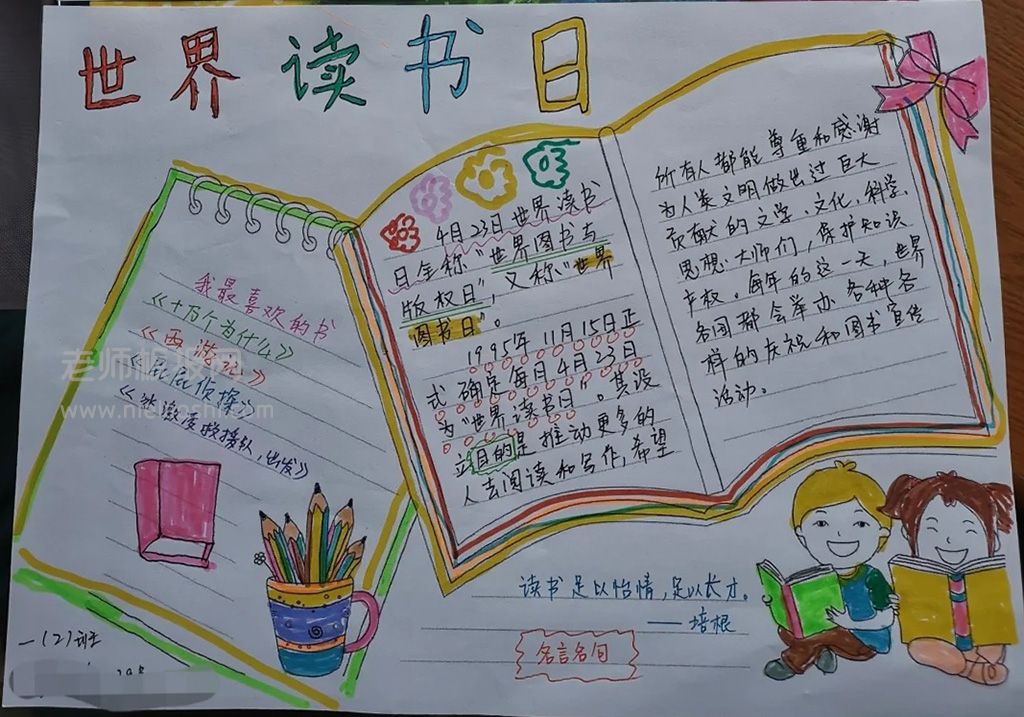 世界读书日
我最喜欢的书
《十万个为什么》
《西游记》
《屁屁侦探》
救援队，出发》
老师板报网
一(2)班
4月23日世界读书
日全称"世界图书与
版权日"，又称"世界
图书日"。
1995年11月15日正
式确定每日4月23日
为"世界读书日"。其设
立目的是推动更多的
人去阅读和写作，希望
所有人都能尊重和感谢
为人类文明做出过巨大
贡献的文学、文化、科学、
思想大师们，保护知识
产权。每年的这一天，世界
各国都会举办各种各
样的庆祝和图书宣传
活动。
读书足以怡情，足以长才。
——培根
名言名句